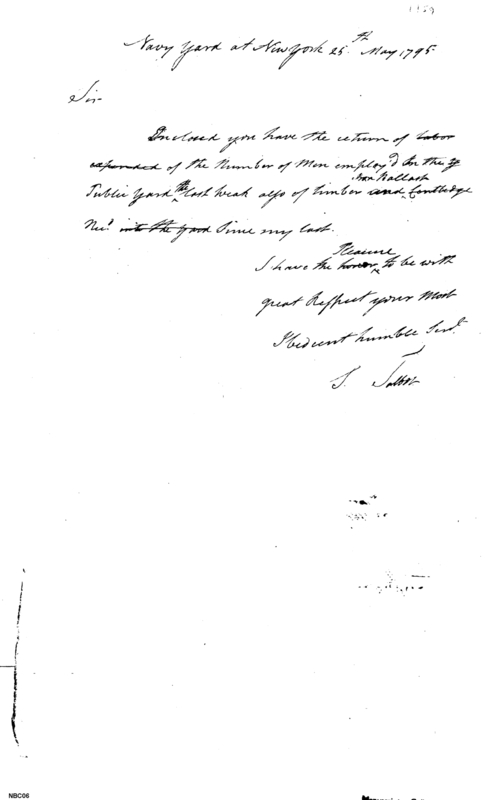 Navy Yard at New York 25th May 1795
Sir
Inclosed you have the return of labor
expended of the Number of Men employd in the
Iron Ballast
Public Yard the last weak also of timber and Centledge
Recd into the yard Since my last.
Pleasure
I have the honor to be with
great Respect your Most
Obedient humble Servt
S. Talbot
NBC06